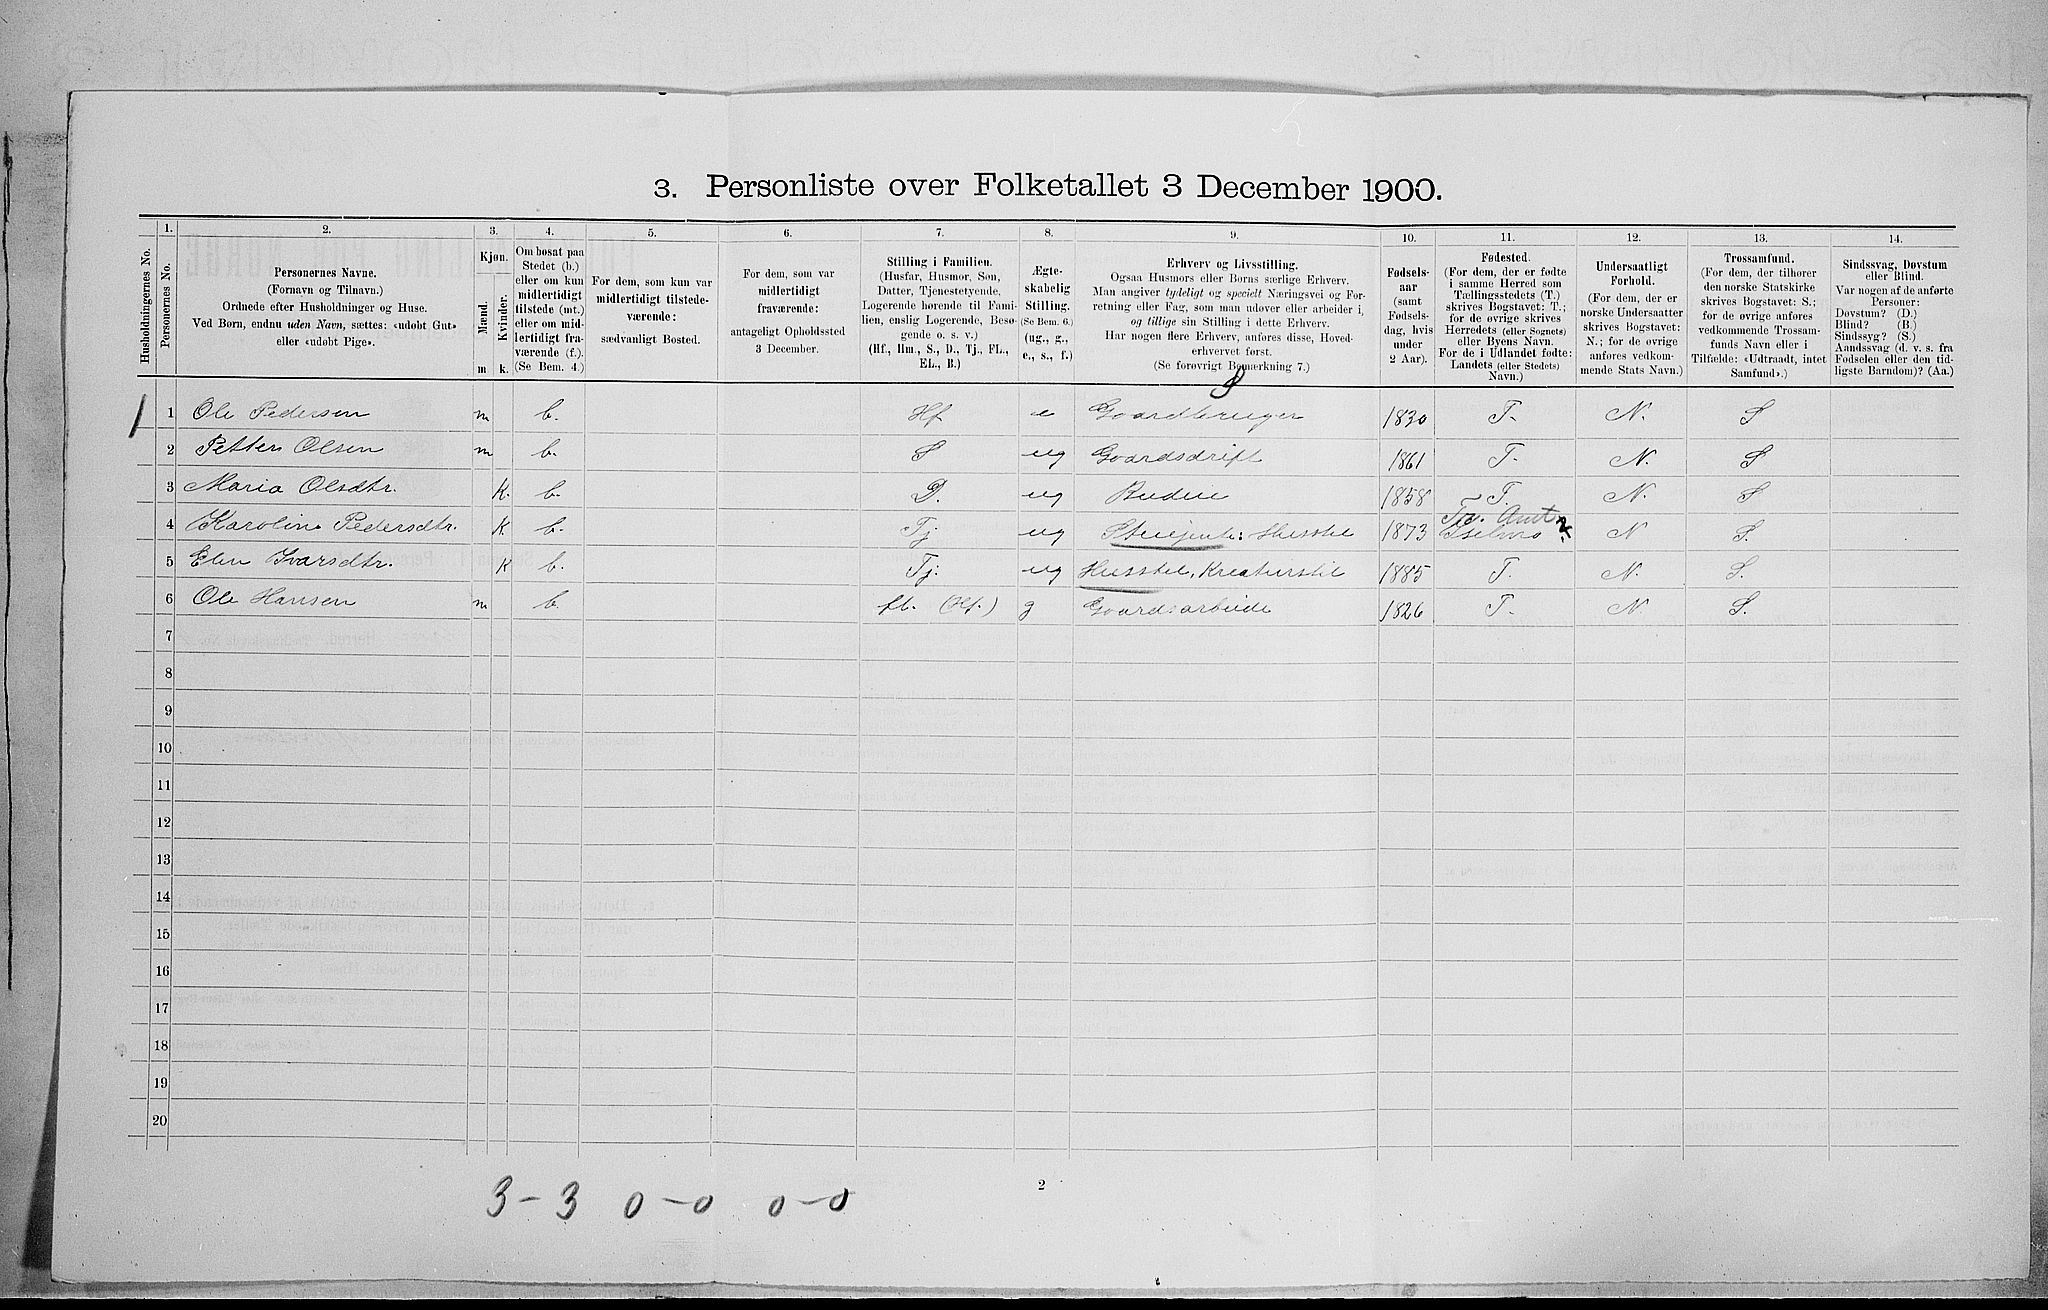 3. Personliste over Folketallet 3 December 1900.
1. 2. 3. 4. 5. 6. 7. 8. 9. 10. 11. 12. 13. 14.
Husholdningernes No.
Personernes No.
Personernes Navne.
(Fornavn og Tilnavn.)
Ordnede efter Husholdninger og Huse.
Ved Børn, endnu uden Navn, sættes: «udøbt Gut»
eller «udøbt Pige».
Kjøn.
Mænd.
Kvinder.
m k.
Om bosat paa
Stedet (b.)
eller om kun
midlertidigt
tilstede (mt.)
eller om mid-
lertidigt fra-
værende (f.).
(Se Bem. 4.)
For dem, som kun var
midlertidigt tilstede-
værende:
sædvanligt Bosted.
For dem, som var
midlertidigt
fraværende:
antageligt Opholdssted
3 December.
Stilling i Familien.
(Husfar, Husmor, Søn,
Datter, Tjenestetyende,
Logerende hørende til Fami-
lien, enslig Logerende, Besø-
gende o. s. v.)
(Hf., Hm., S., D., Tj., FL.,
EL., B.)
Ægte-
skabelig
Stilling.
(Se Bem. 6.)
(ug., g.,
e., s., f.)
Erhverv og Livsstilling.
Ogsaa Husmors eller Børns særlige Erhverv.
Man angiver tydeligt og specielt Næringsvei og For-
retning eller Fag, som man udøver eller arbeider i,
og tillige sin Stilling i dette Erhverv.
Har nogen flere Erhverv, anføres disse, Hoved-
erhvervet først.
(Se forøvrigt Bemærkning 7.)
Fødsels-
aar
(samt
Fødsels-
dag, hvis
under
2 Aar).
Fødested.
(For dem, der er fødte
i samme Herred som
Tællingsstedets (T.)
skrives Bogstavet: T.;
for de øvrige skrives
Herredets (eller Sognets)
eller Byens Navn.
For de i Udlandet fødte:
Landets (eller Stedets)
Navn.)
Undersaatligt
Forhold.
(For dem, der er
norske Undersaatter
skrives Bogstavet:
N.; for de øvrige
anføres vedkom-
mende Stats Navn.)
Trossamfund.
(For dem, der tilhører
den norske Statskirke
skrives Bogstavet: S.;
for de øvrige anføres
vedkommende Trossam-
funds Navn eller i
Tilfælde: «Udtraadt, intet
Samfund».)
Sindssvag, Døvstum
eller Blind.
Var nogen af de anførte
Personer:
Døvstum? (D.)
Blind? (B.)
Sindssyg? (S.)
Aandssvag (d. v. s. fra
Fødselen eller den tid-
ligste Barndom)? (Aa.)
1 1 Ole Pedersen m b. Hf e Gaardbruger 1830 T. N. S
2 Petter Olsen m b. S ug Gaardsdrift 1861 T. N. S
3 Maria Olsdtr. K. b. D. ug Budeie 1858 T. N. S
4 Karolin Pedersdtr. K b. Tj ug Stuejente: Husstel 1873 Tr. Amt N S.
5 Elen Ivarsdtr. K b. Tj. ug Husstel, Kreaturstel 1885 T. N. S.
6 Ole Hansen m b. fl. (Hf.) g Gaardsarbeide 1826 T. N S.
7
8
9
10
11
12
13
14
15
16
17
18
19
20
2
3 - 3 0 - 0 0 - 0